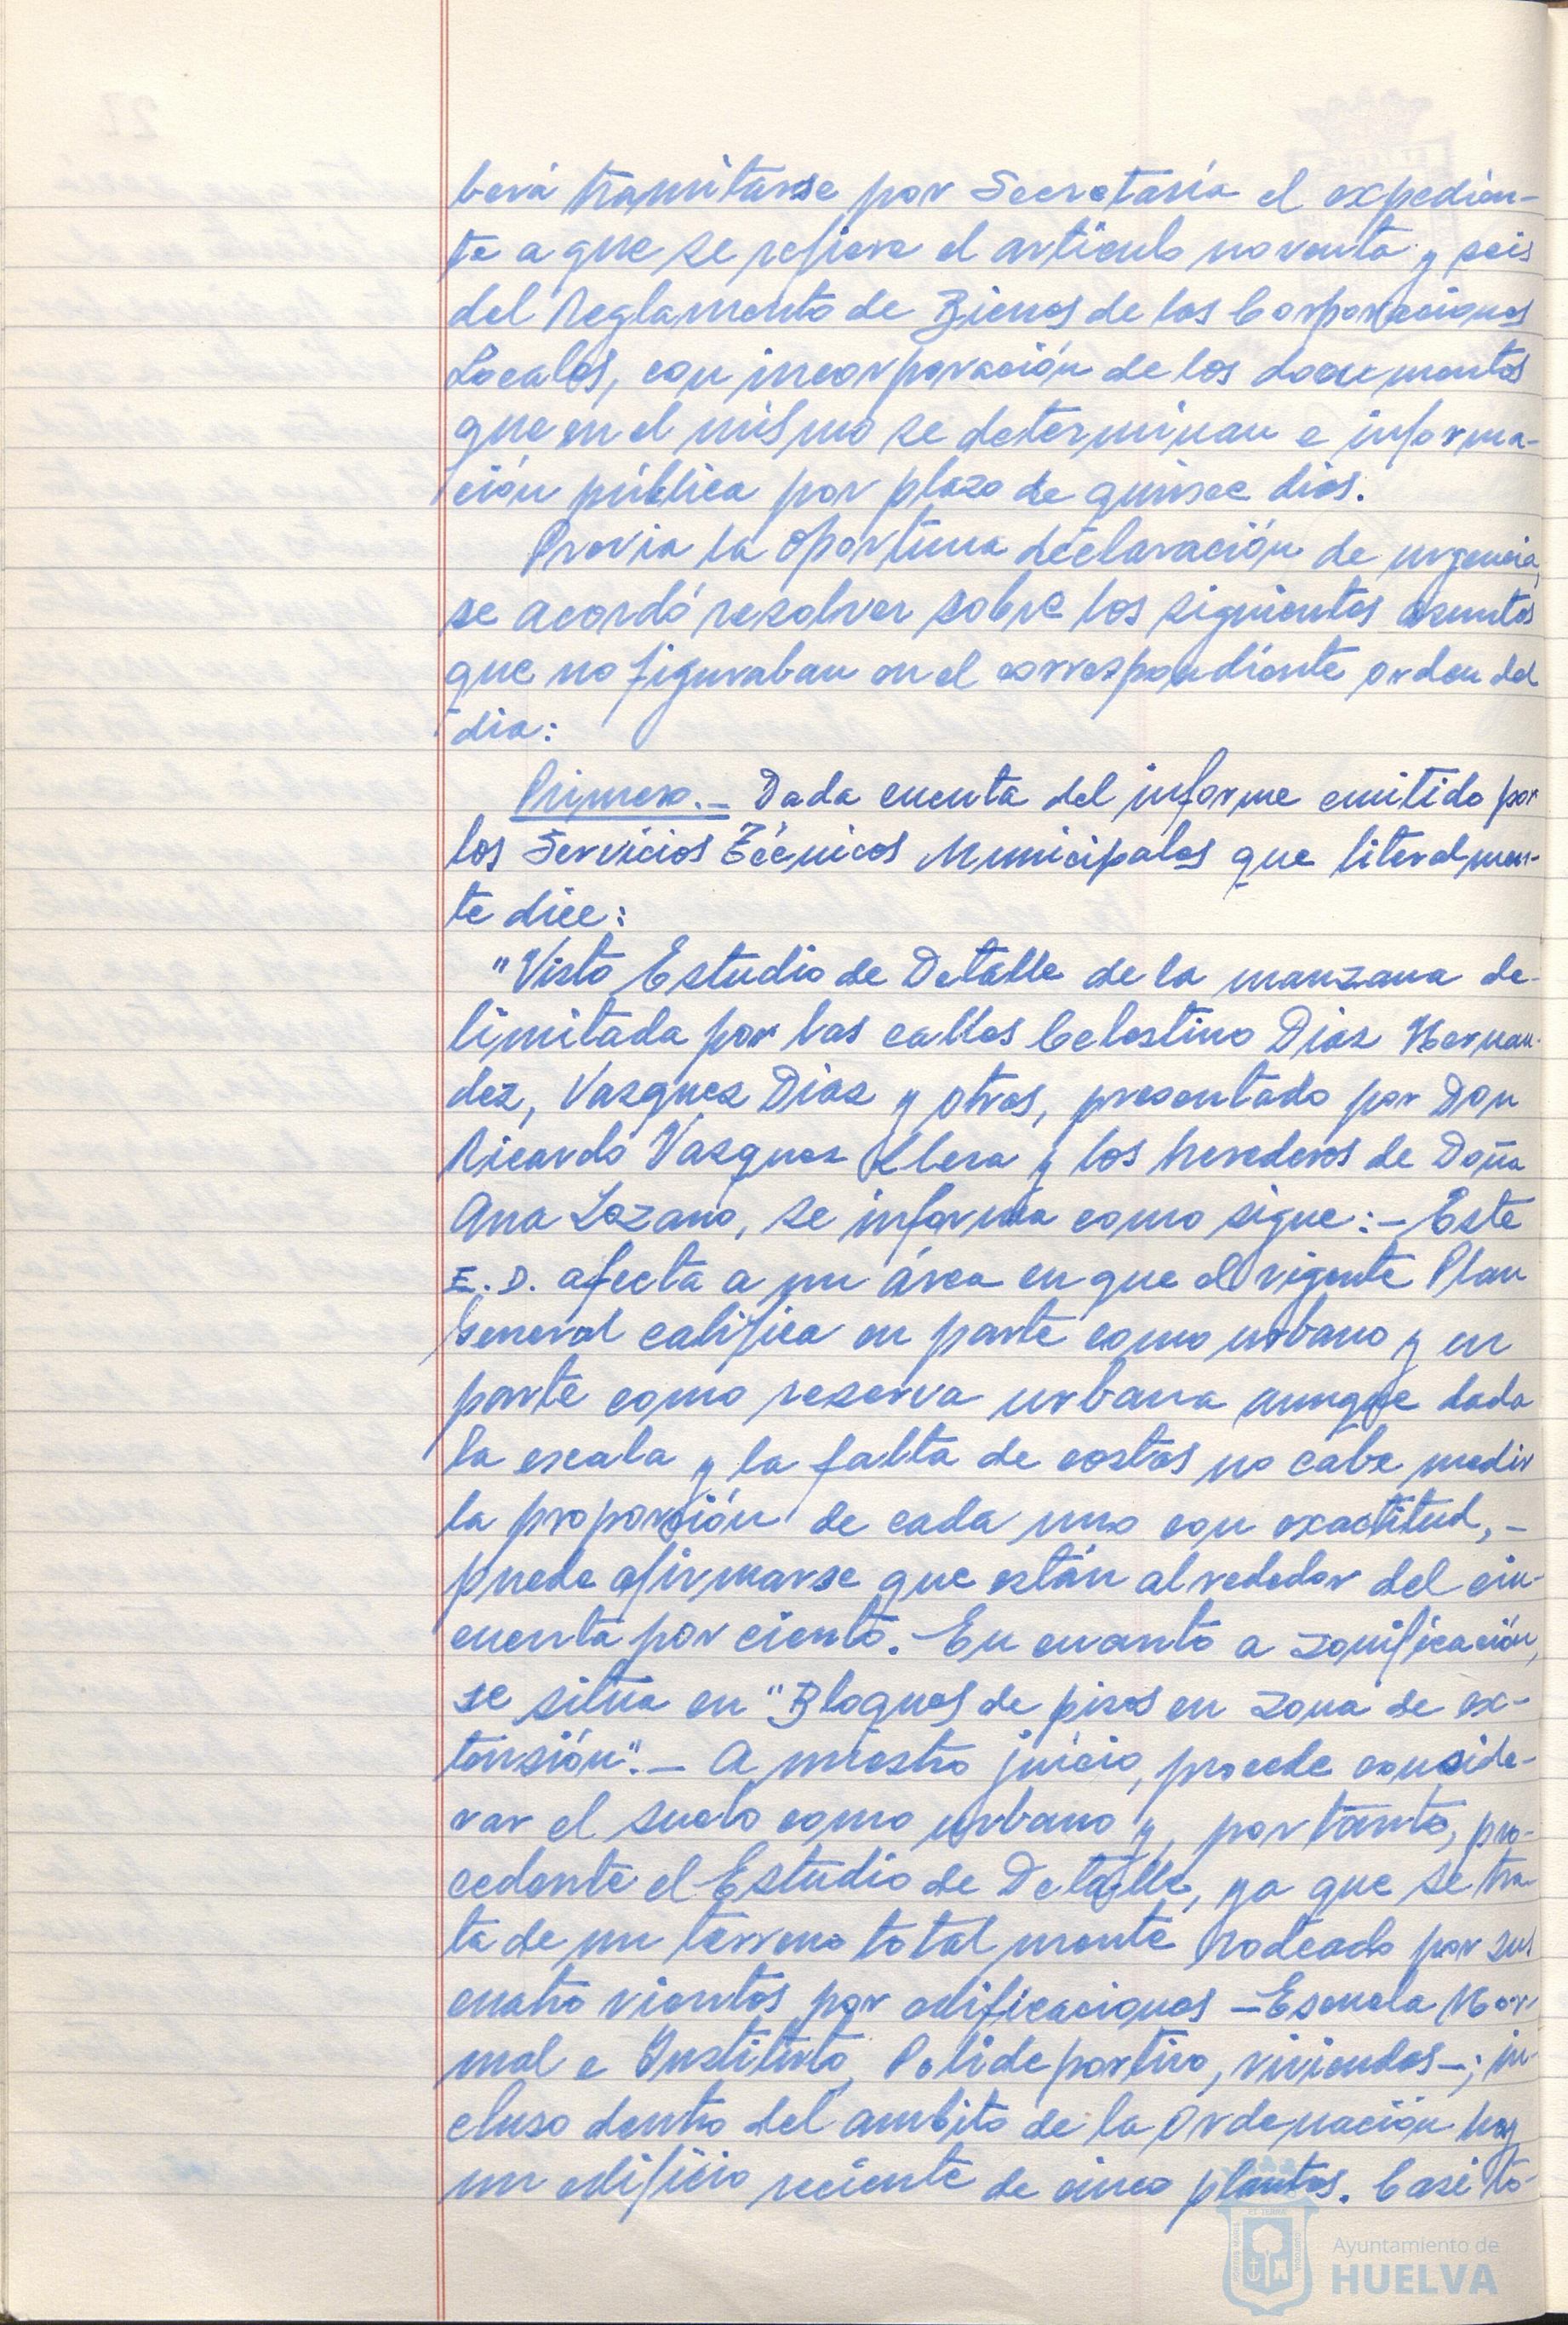 berá tramitarse por Secretaría el expedien-
te a que se refiere el artículo noventa y seis
del Reglamento de Bienes de las Corporaciones
Locales, con incorporación de los documentos
que en el mismo se determinan e informa-
ción pública por plazo de quince dias.
Previa la oportuna declaración de urgencia,
se acordó resolver sobre los siguientes asuntos
que no figuraban en el correspondiente orden del
dia:
Primero.- Dada cuenta del informe emitido por
los Servicios Técnicos Municipales que literalmen-
te dice:
"Visto Estudio de Detalle de la manzana de-
limitada por las calles Celestino Diaz Hernan-
dez, Vazquez Diaz y otras, presentado por Don
Ricardo Vazquez Llera y los herederos de Doña
Ana Lozano, se informa como sigue:- Este
E. D. afecta a un área en que el vigente Plan
General califica en parte como urbano y en
parte como reserva urbana aunque dada
la escala y la falta de cotas no cabe medir
la proporción de cada uno con exactitud, -
puede afirmarse que están alrededor del cin-
cuenta por ciento.- En cuanto a zonificación,
se situa en "Bloques de pisos en zona de ex-
tensión".- A nuestro juicio, procede conside-
rar el suelo como urbano y, por tanto, pro-
cedente el Estudio de Detalle, ya que se tra-
ta de un terreno totalmente rodeado por sus
cuatro vientos por edificaciones -Escuela Nor-
mal e Instituto, Polideportivo, viviendas-; in-
cluso dentro del ambito de la Ordenación hay
un edificio reciente de cinco plantas. Casi to-
Ayuntamiento de
HUELVA